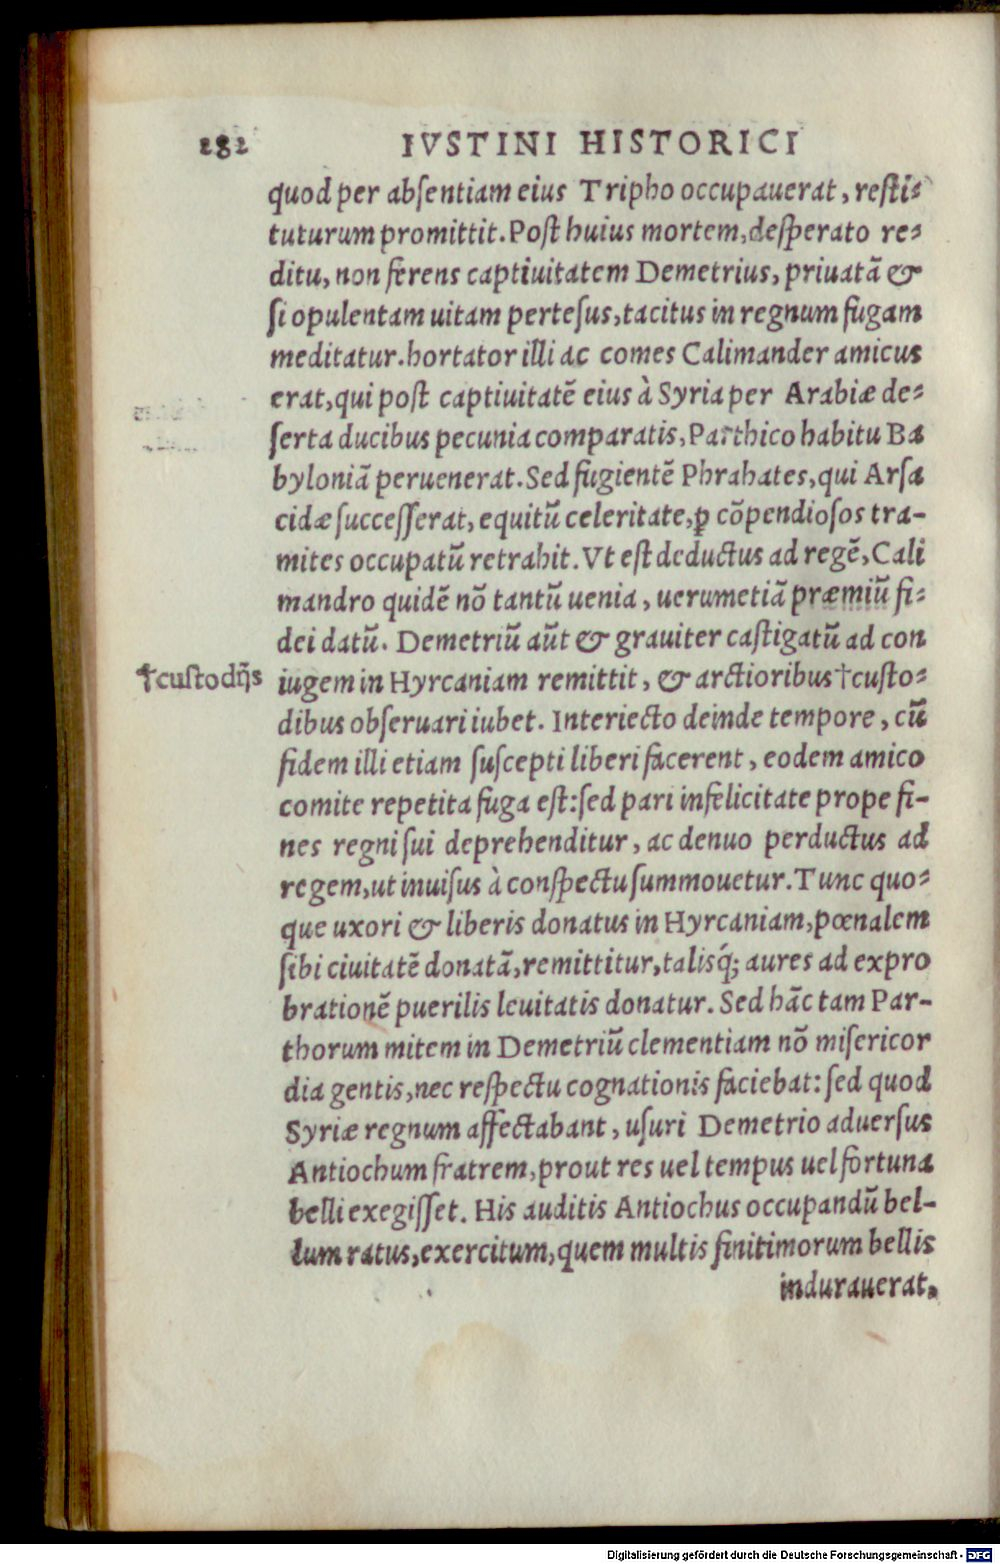 282 IVSTINI HISTORICI
quod per absentiam eius Tripho occupauerat, resti-
tuturum promittit. Post huius mortem, desperato re-
ditu, non ferens captiuitatem Demetrius, priuatā &
si opulentam uitam pertesus, tacitus in regnum fugam
meditatur. hortator illi ac comes Calimander amicus
erat, qui post captiuitatē eius à Syria per Arabiæ de-
serta ducibus pecunia comparatis, Parthico habitu Ba
byloniā peruenerat. Sed fugientē Phrahates, qui Arsa
cidæ successerat, equitū celeritate, ꝑ cōpendiosos tra-
mites occupatū retrahit. Vt est deductus ad regē, Cali
mandro quidē nō tantū uenia, uerumetiā præmiū fi-
dei datū. Demetriū aūt & grauiter castigatū ad con
†custodijs
iugem in Hyrcaniam remittit, & arctioribus †custo-
dibus obseruari iubet. Interiecto deinde tempore, cū
fidem illi etiam suscepti liberi facerent, eodem amico
comite repetita fuga est: sed pari infelicitate prope fi-
nes regni sui deprehenditur, ac denuo perductus ad
regem, ut inuisus à conspectu summouetur. Tunc quo-
que uxori & liberis donatus in Hyrcaniam, pœnalem
sibi ciuitatē donatā, remittitur, talisq́; aures ad expro
brationē puerilis leuitatis donatur. Sed hāc tam Par-
thorum mitem in Demetriū clementiam nō misericor
dia gentis, nec respectu cognationis faciebat: sed quod
Syriæ regnum affectabant, usuri Demetrio aduersus
Antiochum fratrem, prout res uel tempus uel fortuna
belli exegisset. His auditis Antiochus occupandū bel-
lum ratus, exercitum, quem multis finitimorum bellis
indurauerat,
Digitalisierung gefördert durch die Deutsche Forschungsgemeinschaft - DFG